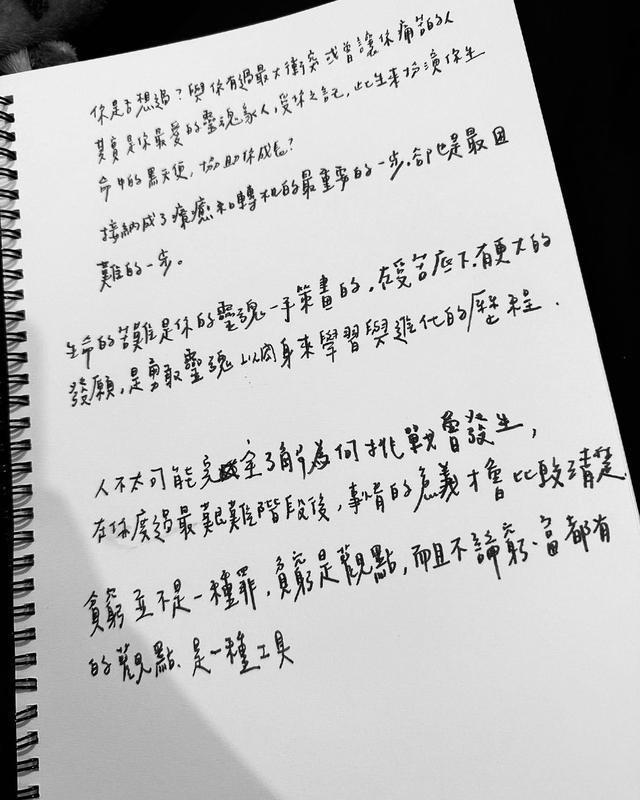 你是否想過？與你有過最大衝突或曾讓你痛苦的人
其實是你最愛的靈魂家人，受你之託，此生來扮演你生
命中的黑天使，協助你成長？
接納成了療癒和轉机的最重要的一步。卻也是最困
難的一步。
生命的苦難是你的靈魂一手策畫的，在受苦底下，有更大的
發願，是勇敢靈魂以肉身來學習與進化的歷程．
人不太可能完全了解為何挑戰會發生，
在你度過最艱難階段後，事情的意義才會比較清楚．
貧窮並不是一種罪，貧窮是觀點，而且不論窮、富都有
的觀點、是一種工具